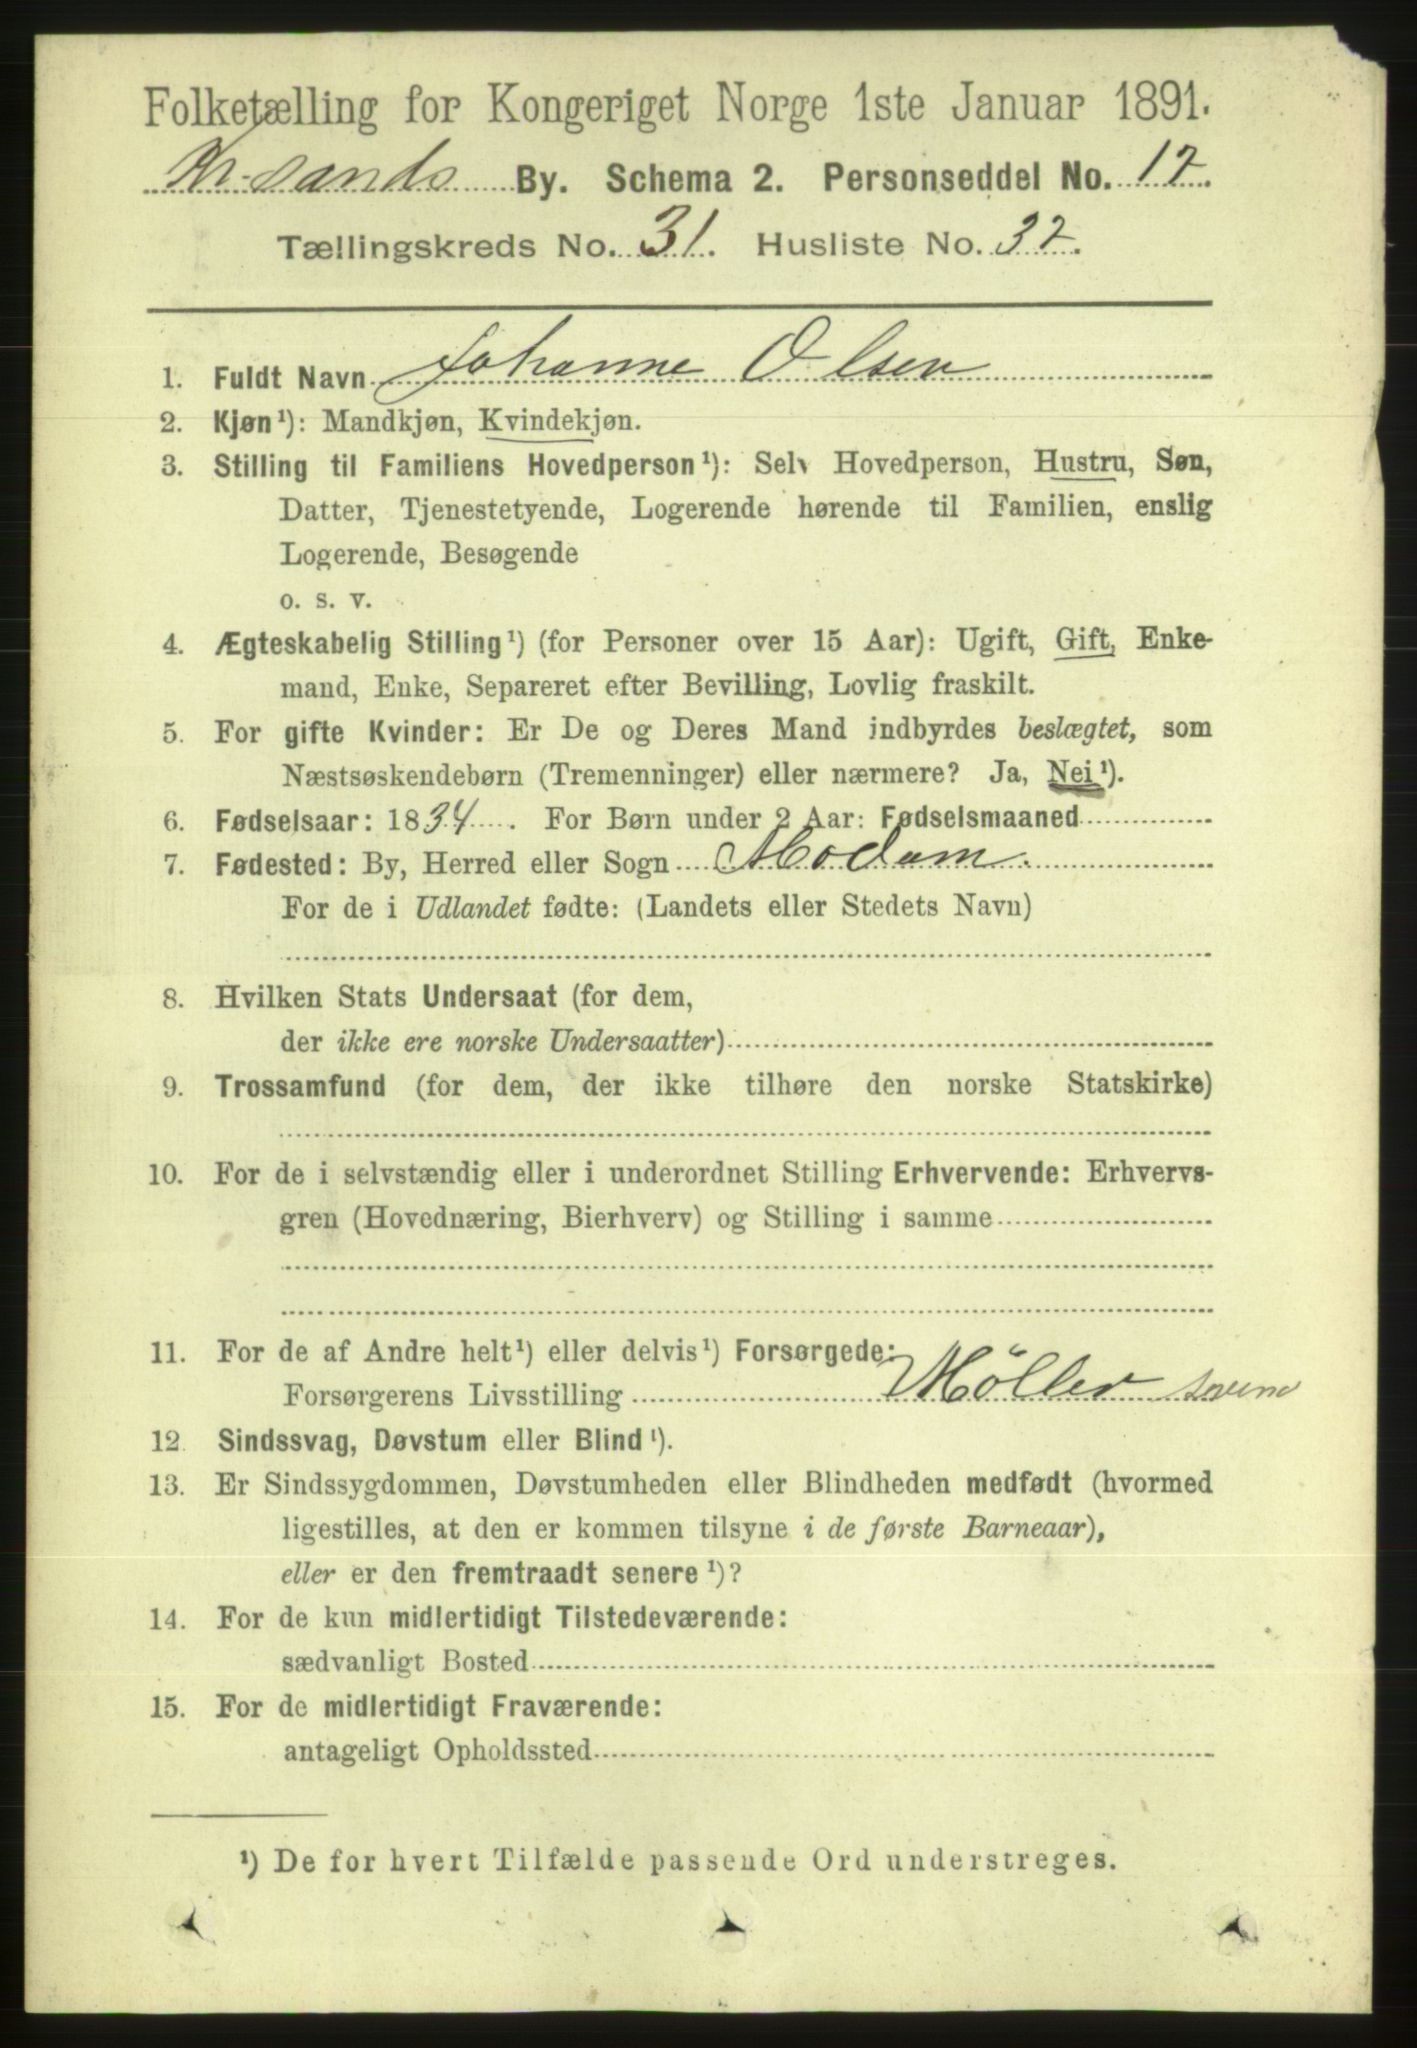 Folketælling for Kongeriget Norge 1ste Januar 1891.
Kr.sands By. Schema 2. Personseddel No. 12.
Tællingskreds No. 31. Husliste No. 32.
1. Fuldt Navn Johanne Olsen
2. Kjøn¹): Mandkjøn, Kvindekjøn.
3. Stilling til Familiens Hovedperson¹): Selv Hovedperson, Hustru, Søn,
Datter, Tjenestetyende, Logerende hørende til Familien, enslig
Logerende, Besøgende
o. s. v.
4. Ægteskabelig Stilling¹) (for Personer over 15 Aar): Ugift, Gift, Enke-
mand, Enke, Separeret efter Bevilling, Lovlig fraskilt.
5. For gifte Kvinder: Er De og Deres Mand indbyrdes beslægtet, som
Næstsøskendebørn (Tremenninger) eller nærmere? Ja, Nei¹).
6. Fødselsaar: 1834. For Børn under 2 Aar: Fødselsmaaned
7. Fødested: By, Herred eller Sogn Modum.
For de i Udlandet fødte: (Landets eller Stedets Navn)
8. Hvilken Stats Undersaat (for dem,
der ikke ere norske Undersaatter)
9. Trossamfund (for dem, der ikke tilhøre den norske Statskirke)
10. For de i selvstændig eller i underordnet Stilling Erhvervende: Erhvervs-
gren (Hovednæring, Bierhverv) og Stilling i samme
11. For de af Andre helt¹) eller delvis¹) Forsørgede:
Forsørgerens Livsstilling Möller
12. Sindssvag, Døvstum eller Blind¹).
13. Er Sindssygdommen, Døvstumheden eller Blindheden medfødt (hvormed
ligestilles, at den er kommen tilsyne i de første Barneaar),
eller er den fremtraadt senere¹)?
14. For de kun midlertidigt Tilstedeværende:
sædvanligt Bosted
15. For de midlertidigt Fraværende:
antageligt Opholdssted
¹) De for hvert Tilfælde passende Ord understreges.